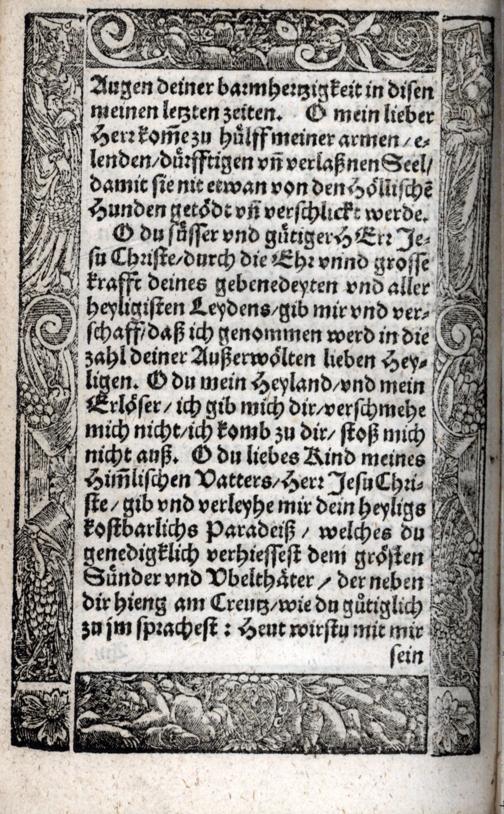 Augen deiner barmhertzigkeit in disen
meinen letzten zeiten. O mein lieber
Herr kom̃e zu hülff meiner armen / e-
lenden / dürfftigen vn̄ verlaßnen Seel /
damit sie nit etwan von den Höllischē
Hunden getödt vn̄ verschlickt werde.
O du süsser vnd gütiger HErr Je-
su Christe / durch die Ehr vnnd grosse
krafft deines gebenedeyten vnd aller
heyligisten Leydens / gib mir vnd ver-
schaff / daß ich genommen werd in die
zahl deiner Außerwölten lieben Hey-
ligen. O du mein Heyland / vnd mein
Erlöser / ich gib mich dir / verschmehe
mich nicht / ich komb zu dir / stoß mich
nicht auß. O du liebes Kind meines
Him̃lischen Vatters / Herr Jesu Chri-
ste / gib vnd verleyhe mir dein heyligs
kostbarlichs Paradeiß / welches du
genedigklich verhiessest dem grösten
Sünder vnd Vbelthäter / der neben
dir hieng am Creutz / wie du gütiglich
zu jm sprachest : Heut wirstu mit mir
sein